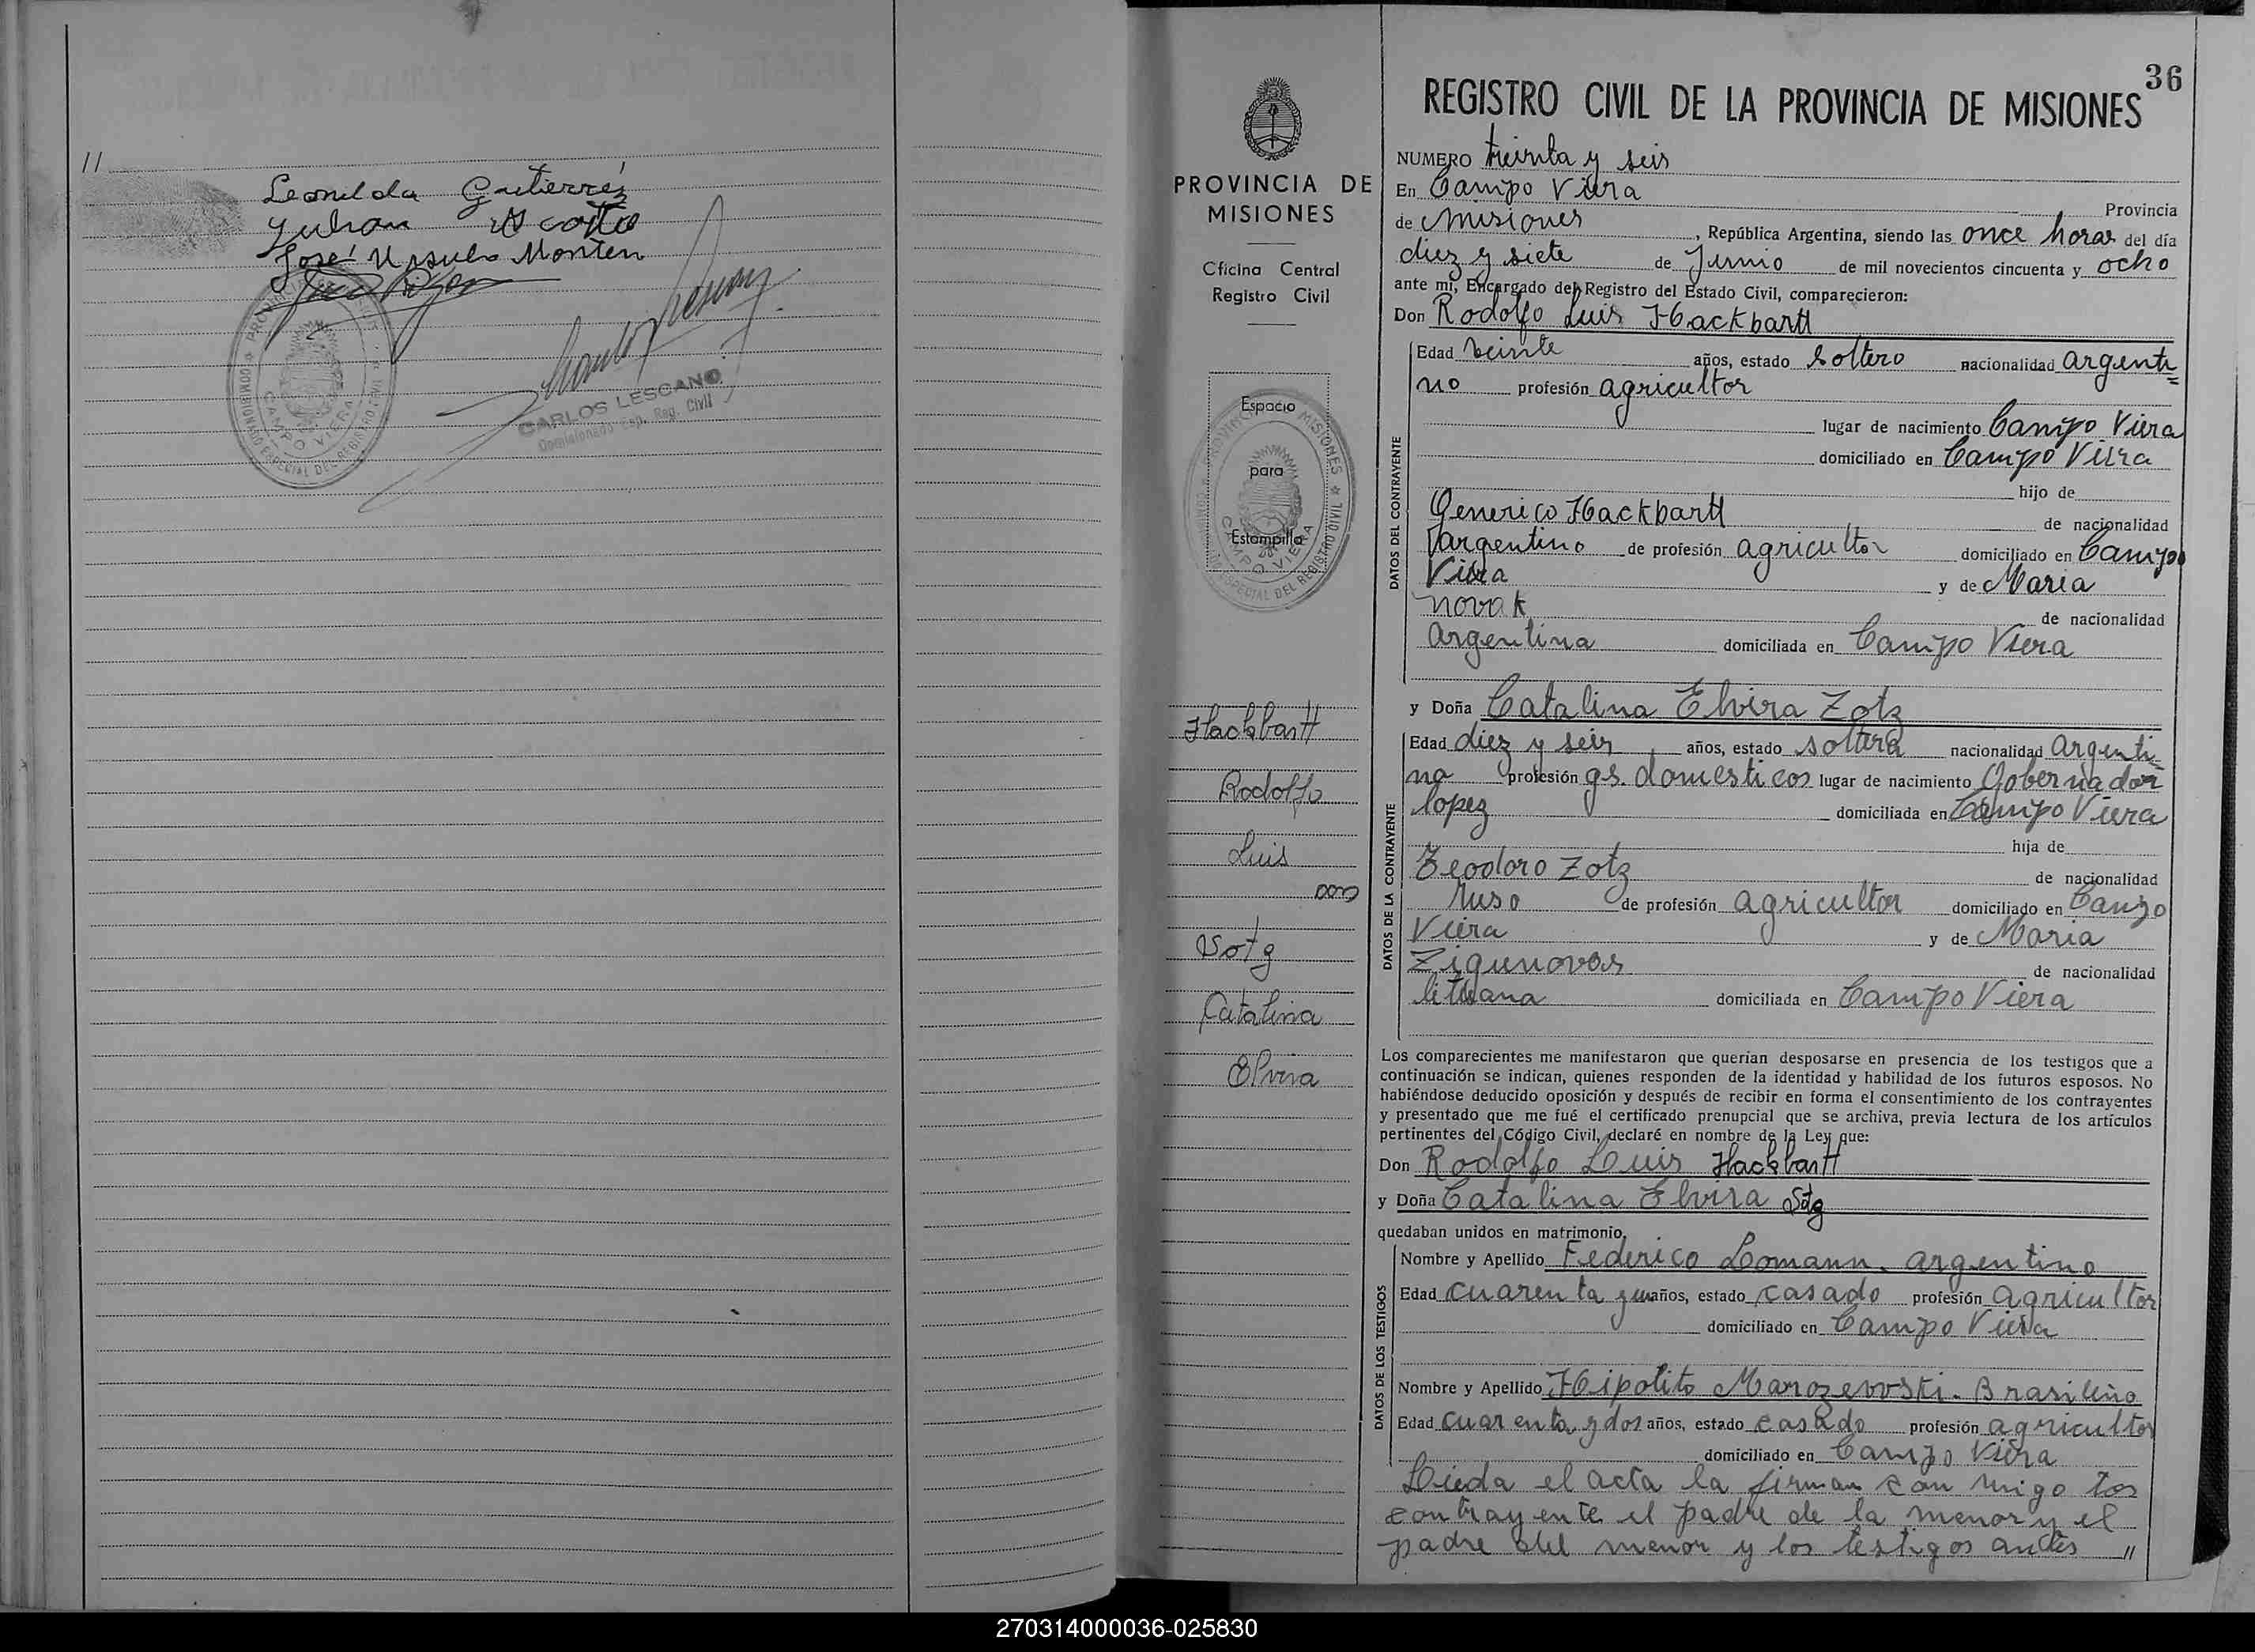 //
Leonilda Gutierrez
Julian Acosta
José Ursulo Monten
CAMPO VIERA
CARLOS LESCANO
Comisionado Esp. Reg. Civil
PROVINCIA DE
MISIONES
Oficina Central
Registro Civil
Espacio
para
Estampilla
CAMPO VIERA
Hackbartt
Rodolfo
Luis
con
Sotz
Catalina
Elvira
36
REGISTRO CIVIL DE LA PROVINCIA DE MISIONES
NUMERO treinta y seis
En Campo Viera
Provincia
de Misiones, República Argentina, siendo las once horas del día
diez y siete de Junio de mil novecientos cincuenta y ocho
ante mí, Encargado del Registro del Estado Civil, comparecieron:
Don Rodolfo Luis Hackbartt
DATOS DEL CONTRAYENTE
Edad veinte años, estado soltero nacionalidad argenti=
no profesión agricultor
lugar de nacimiento Campo Viera
domiciliado en Campo Viera
hijo de
Generico Hackbartt de nacionalidad
argentino de profesión agricultor domiciliado en Campo
Viera y de Maria
Novak de nacionalidad
argentina domiciliada en Campo Viera
y Doña Catalina Elvira Zotz
DATOS DE LA CONTRAYENTE
Edad diez y seis años, estado soltera nacionalidad argenti=
na profesión qs. domesticos lugar de nacimiento Gobernador
lopez domiciliada en Campo Viera
hija de
Teodoro Zotz de nacionalidad
ruso de profesión agricultor domiciliado en Campo
Viera y de Maria
Zigunovas de nacionalidad
lituana domiciliada en Campo Viera
Los comparecientes me manifestaron que querían desposarse en presencia de los testigos que a
continuación se indican, quienes responden de la identidad y habilidad de los futuros esposos. No
habiéndose deducido oposición y después de recibir en forma el consentimiento de los contrayentes
y presentado que me fué el certificado prenupcial que se archiva, previa lectura de los artículos
pertinentes del Código Civil, declaré en nombre de la Ley que:
Don Rodolfo Luis Hackbartt
y Doña Catalina Elvira Sotz
quedaban unidos en matrimonio.
DATOS DE LOS TESTIGOS
Nombre y Apellido Federico Lomann. argentino
Edad cuarenta y un años, estado casado profesión agricultor
domiciliado en Campo Viera
Nombre y Apellido Hipolito Marozevvski. Brasileño
Edad cuarenta y dos años, estado casado profesión agricultor
domiciliado en Campo Viera
Leida el acta la firman con migo los
contrayente el padre de la menor y el
padre del menor y los testigos antes //
270314000036-025830